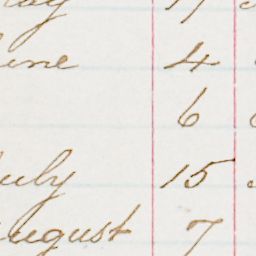 ay 17
une 4
6
uly 15
ugust 7